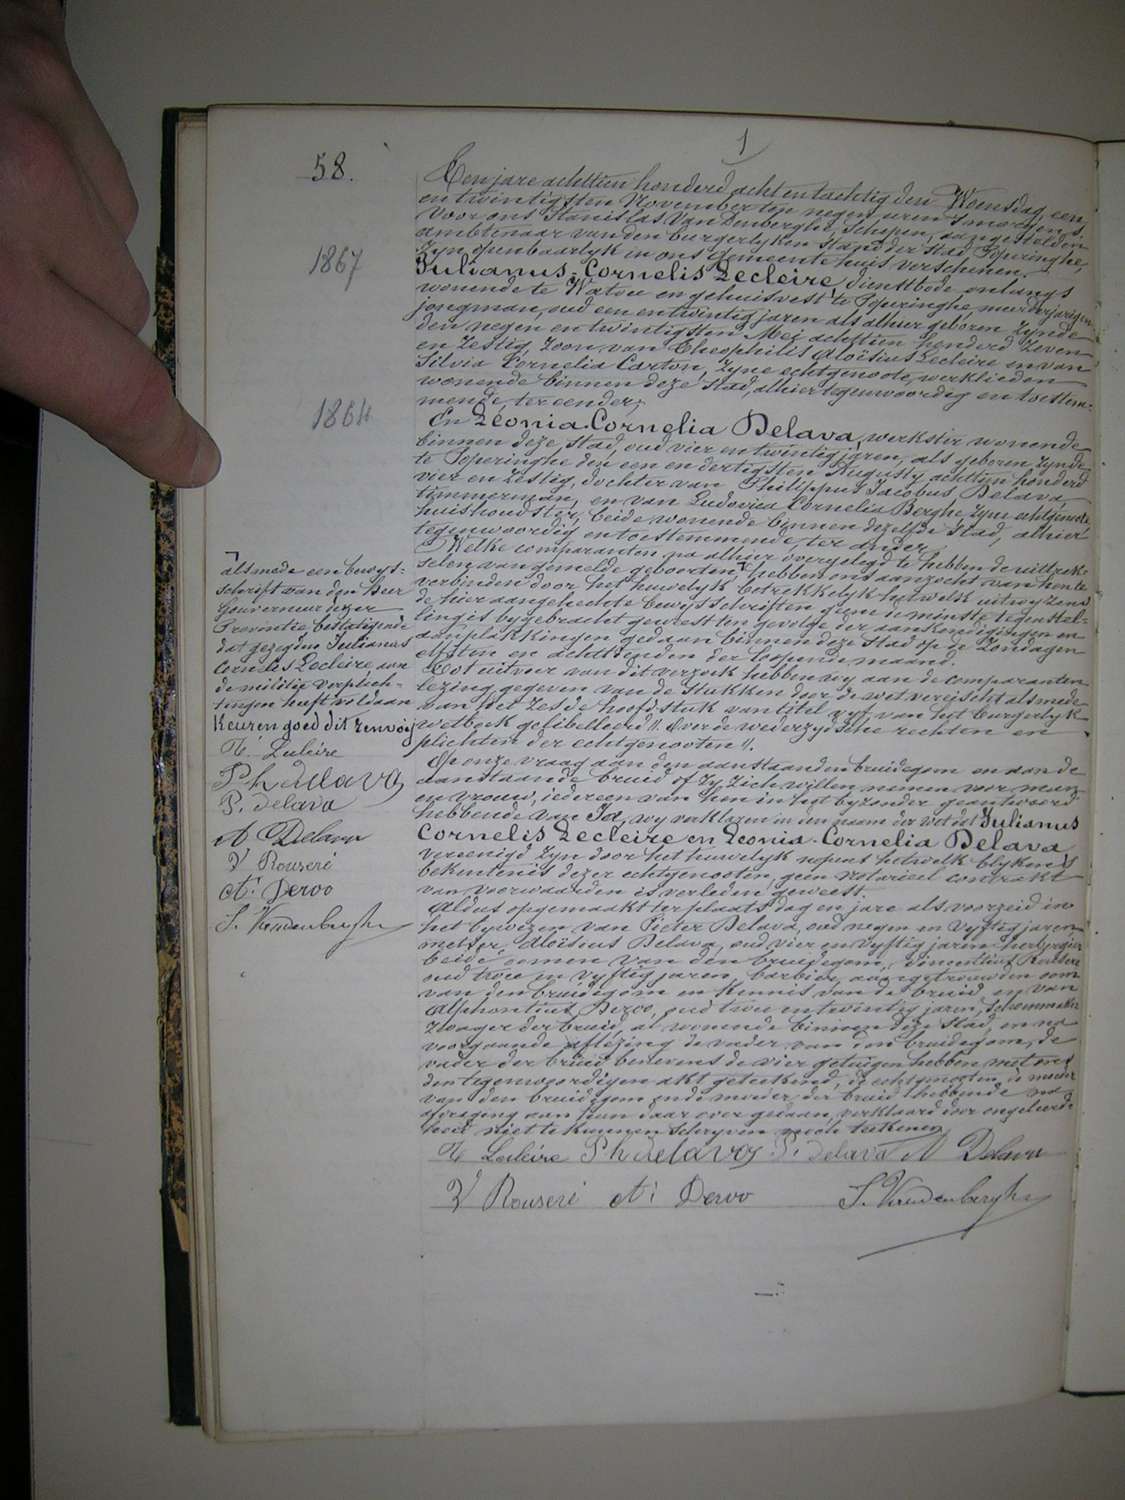 1
58.
Een jare achttien honderd acht en tachtig den Woensdag, een
en twintigsten November ten negen uren s'morgens,
voor ons Stanislas Van Denberghe, Schepen, aangestelden
ambtenaar van den burgerlyken stand der stad Poperinghe,
zyn openbaarlyk in ons gemeentehuis verschenen.
1867
Julianus-Cornelis Lecleire, dienstbode onlangs
wonende te Watou en gehuisvest te Poperinghe, meerderjarigen
jongman, oud een en twintig jaren als alhier geboren zynde
den negen en twintigsten Mei achttien honderd zeven
en zestig, zoon van Theophilis Aloïsius Lecleire en van
Silvia Cornelia Carton, zyne echtgenoote, werklieden
wonende binnen deze stad, alhier tegenwoordig en toestem-
mende, ter eender;
1864
En Leonia-Cornelia Delava, werkster wonende
binnen deze stad, oud vier en twintig jaren, als geboren zynde
te Poperinghe den een en dertigsten Augusty achttien honderd
vier en zestig, dochter van Philippus Jacobus Delava,
timmerman, en van Ludovica Cornelia Berghe zyne echtgenoote
huishoudster, beide wonende binnen dezelfde stad, alhier
tegenwoordig en toestemmende, ter ander.
Welke comparanten na alhier overgelegd te hebben de uittrek-
selen van gemelde geboorten, hebben ons aanzocht van hen te
verbinden door het huwelyk betrekkelyk hetwelk uitwyzens
de hier aangehechte bewysschriften geene de minste tegenstel-
ling is bygebracht geweest ten gevolge der aankondigingen en
aanplakkingen gedaan binnen deze stad op de Zondagen
elfsten en achttienden der loopende maand.
Tot uitvoer van dit verzoek hebben wy aan de comparanten
lezing gegeven van de stukken door de wet vereischt alsmede
van het zesde hoofdstuk van titel vyf van het burgerlyk
wetboek gelibelleerd // Over de wederzydsche rechten en
plichten der echtgenooten //.
Op onze vraag aan den aanstaanden bruidegom en aan de
aanstaande bruid of zy zich willen nemen voor man
en vrouw, iedereen van hen in het byzonder geantwoord
hebbende van Ja, wy verklaren in den naam der wet dat Julianus
Cornelis Lecleire en Leonia-Cornelia Delava
vereenigd zyn door het huwelyk nopens hetwelk blykens
bekentenis dezer echtgenooten, geen notarieel contrakt
van voorwaarden is verleden geweest
Aldus opgemaakt ter plaats dag en jare als voorzeid in
het bywezen van Pieter Delava, oud negen en vyftig jaren
metser, Aloïsius Delava, oud vier en vyftig jaren herbergier
beide oomen van den bruidegom, Vincentius Rouseré
oud twee en vyftig jaren, barbier, aangetrouwden oom
van den bruidegom en kennis van de bruid en van
Alphontius Dervo, oud twee en twintig jaren, schoenmaker
zwager der bruid, al wonende binnen deze stad, en na
voorgaande aflezing de vader van den bruidegom, de
vader der bruid benevens de vier getuigen hebben met ons
den tegenwoordigen akt geteekend, de echtgenooten, de moeder
van den bruidegom en de moeder der bruid hebbende na
afvraging aan hun daar over gedaan, verklaard door ongeleerd-
heid niet te kunnen schryven noch teekenen
Th Lecleire Ph delava P. delava A Delava
V Rouseré A: Dervo S. Vandenberghe
alsmede een bewys-
schrift van den Heer
Gouverneur dezer
Provintie bestatigende
dat gezegden Julianus
Cornelis Lecleire aan
de militie verplich-
tingen heeft voldaan
Keuren goed dit renvoij
Th Lecleire
Ph delava
P. delava
A Delava
V Rouseré
A: Dervo
S. Vandenberghe